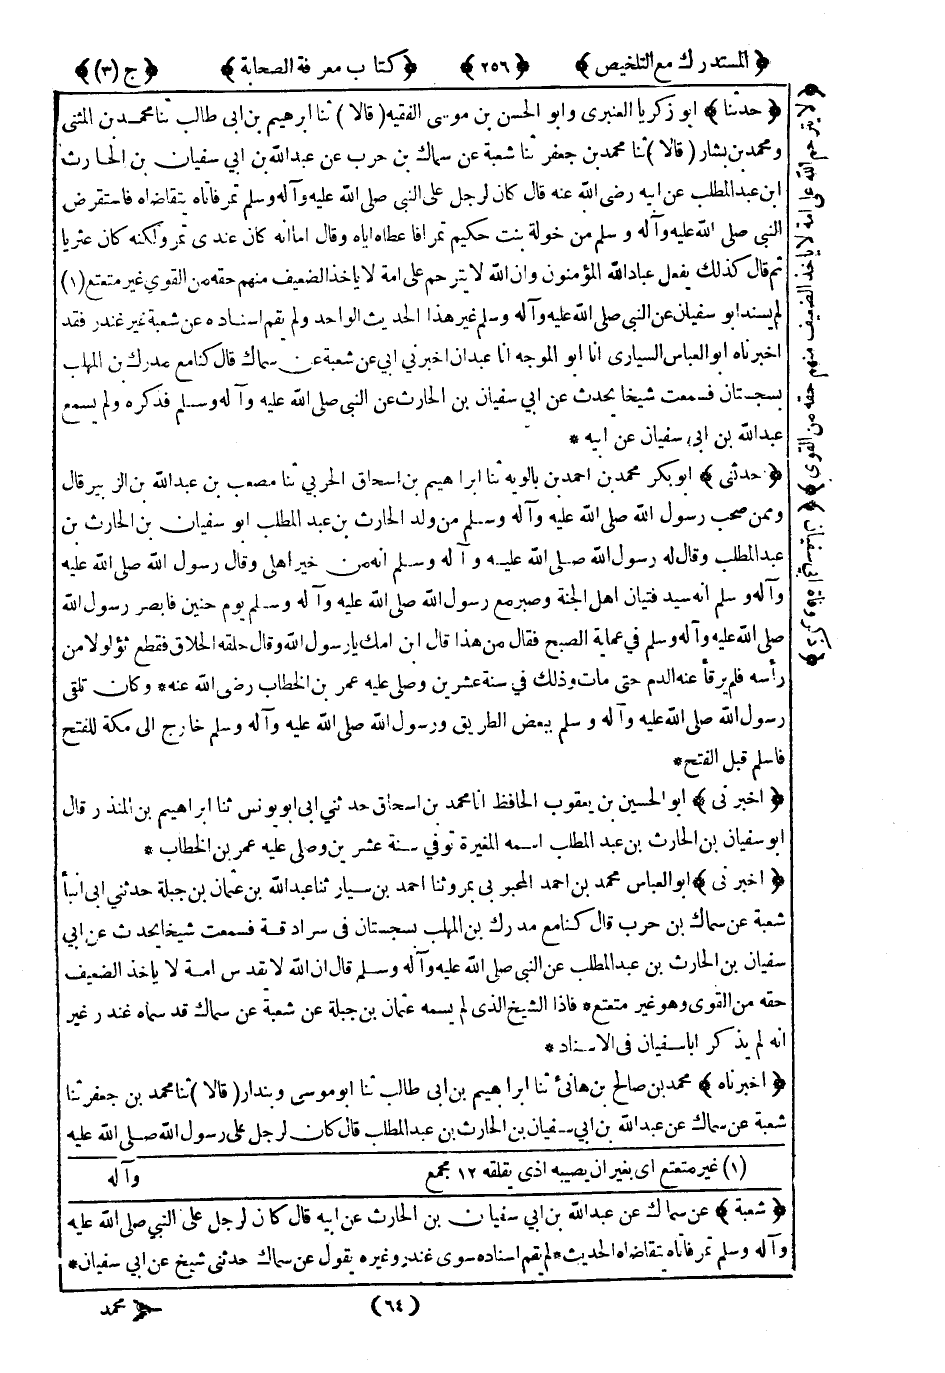 ﴿ المستدرك مع التلخيص ﴾ ﴿ ٢٥٦ ﴾ ﴿ كتاب معرفة الصحابة ﴾ ﴿ ج (٣) ﴾
﴿ حدثنا ﴾ ابو زكريا العنبرى وابو الحسن بن موسى الفقيه (قالا) ثنا ابرهيم بن ابى طالب ثنا محمد بن المثنى
ومحمد بن بشار (قالا) ثنا محمد بن جعفر ثنا شعبة عن سماك بن حرب عن عبدالله بن ابي سفيان بن الحارث
ابن عبد المطلب عن ابيه رضى الله عنه قال كان لرجل على النبي صلى الله عليه وآله وسلم تمر فاتاه يتقاضاه فاستقرض
النبي صلى الله عليه وآله وسلم من خولة بنت حكيم تمرا فاعطاه اياه وقال اما انه كان عندى تمر ولكنه كان عثريا
ثم قال كذلك يفعل عباد الله المؤمنون وان الله لا يترحم على امة لا ياخذ الضعيف منهم حقه من القوي غير متعتع (١)
لم يسند ابو سفيان عن النبي صلى الله عليه وآله وسلم غير هذا الحديث الواحد ولم يقم اسناده عن شعبة غير غندر فقد
اخبرناه ابو العباس السيارى انا ابو الموجه انا عبدان اخبرني ابي عن شعبة عن سماك قال كنا مع مدرك بن المهلب
بسجستان فسمعت شيخا يحدث عن ابي سفيان بن الحارث عن النبي صلى الله عليه وآله وسلم فذكره ولم يسمع
عبدالله بن ابى سفيان عن ابيه *
﴿ حدثنى ﴾ ابوبكر محمد بن احمد بن بالويه ثنا ابراهيم بن اسحاق الحربي ثنا مصعب بن عبدالله بن الزبير قال
وممن صحب رسول الله صلى الله عليه وآله وسلم من ولد الحارث بن عبد المطلب ابو سفيان بن الحارث بن
عبد المطلب وقال له رسول الله صلى الله عليه وآله وسلم انه من خير اهلى وقال رسول الله صلى الله عليه
وآله وسلم انه سيد فتيان اهل الجنة وصبر مع رسول الله صلى الله عليه وآله وسلم يوم حنين فابصر رسول الله
صلى الله عليه وآله وسلم في عماية الصبح فقال من هذا قال ابن امك يارسول الله وقال حلقه الحلاق فقطع ثؤلولا من
رأسه فلم يرقأ عنه الدم حتى مات وذلك في سنة عشرين وصلى عليه عمر بن الخطاب رضى الله عنه * وكان تلقى
رسول الله صلى الله عليه وآله وسلم ببعض الطريق ورسول الله صلى الله عليه وآله وسلم خارج الى مكة للفتح
فاسلم قبل الفتح *
﴿ اخبرنى ﴾ ابو الحسين بن يعقوب الحافظ انا محمد بن اسحاق حدثني ابى ابو يونس ثنا ابراهيم بن المنذر قال
ابو سفيان بن الحارث بن عبد المطلب اسمه المغيرة توفي سنة عشرين وصلى عليه عمر بن الخطاب *
﴿ اخبرنى ﴾ ابو العباس محمد بن احمد المحبوبى بمرو ثنا احمد بن سيار ثنا عبدالله بن عثمان بن جبلة حدثني ابى انبأ
شعبة عن سماك بن حرب قال كنا مع مدرك بن المهلب بسجستان فى سرادقة فسمعت شيخا يحدث عن ابي
سفيان بن الحارث بن عبد المطلب عن النبي صلى الله عليه وآله وسلم قال ان الله لا يقدس امة لا ياخذ الضعيف
حقه من القوى وهو غير متعتع * فاذا الشيخ الذى لم يسمه عثمان بن جبلة عن شعبة عن سماك قد سماه غندر غير
انه لم يذكر ابا سفيان فى الاسناد *
﴿ اخبرناه ﴾ محمد بن صالح بن هانئ ثنا ابراهيم بن ابى طالب ثنا ابو موسى وبندار (قالا) ثنا محمد بن جعفر ثنا
شعبة عن سماك عن عبدالله بن ابي سفيان بن الحارث بن عبد المطلب قال كان لرجل على رسول الله صلى الله عليه
وآله
(١) غير متعتع اى بغير ان يصيبه اذى يقلقه ١٢ مجمع
﴿ شعبة ﴾ عن سماك عن عبدالله بن ابي سفيان بن الحارث عن ابيه قال كان لرجل على النبي صلى الله عليه
وآله وسلم تمر فاتاه يتقاضاه الحديث * لم يقم اسناده سوى غندر وغيره يقول عن سماك حدثنى شيخ عن ابي سفيان *
(٦٤) محمد
﴿ لا يترحم الله على امة لا ياخذ الضعيف منهم حقه من القوى ﴾ ﴿ ذكر وفاة ابي سفيان ﴾